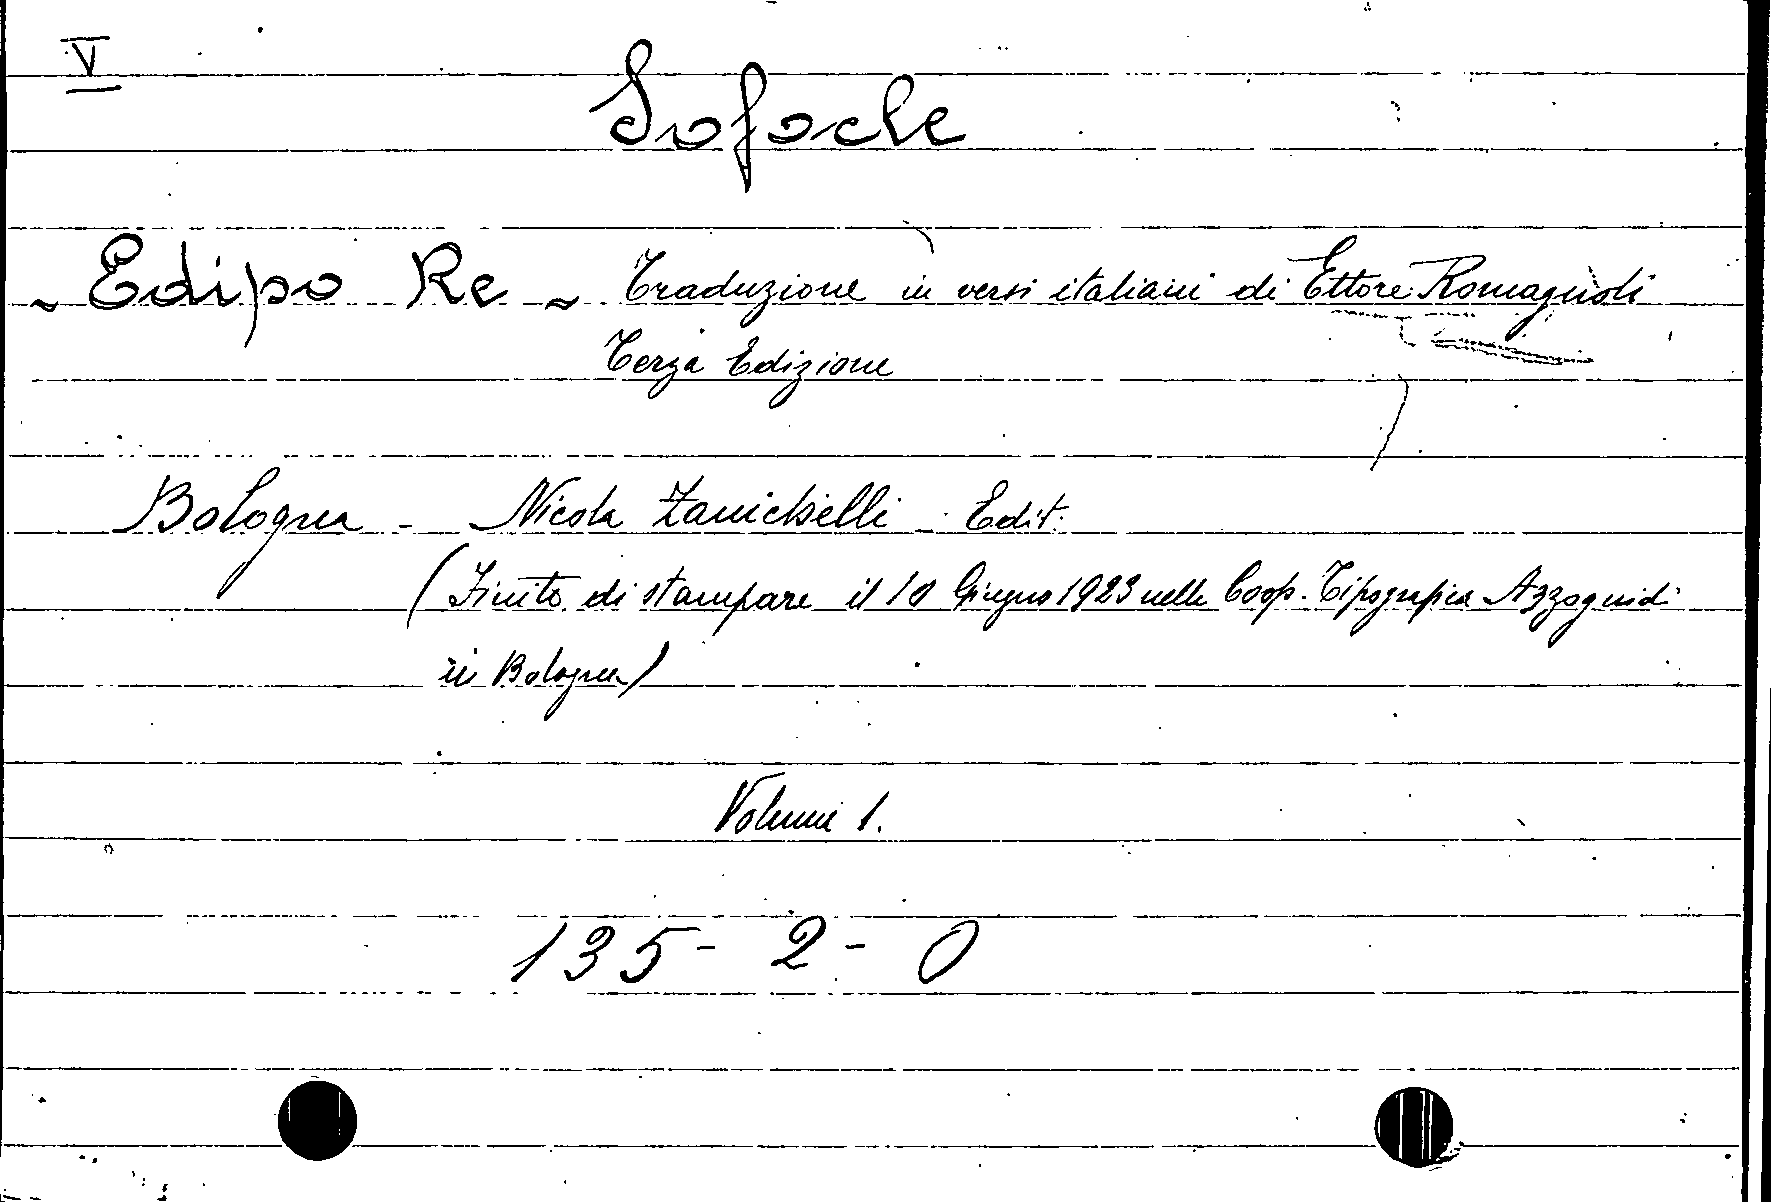 V
Sofocle
- Edipo Re - Traduzione in versi italiani di Ettore Romagnoli
Terza Edizione
Bologna - Nicola Zanichelli - Edit.
(Finito di stampare il 10 Giugno 1923 nelle Coop. Tipografica Azzoguidi
in Bologna)
Volumi 1.
135 - 2 - 0